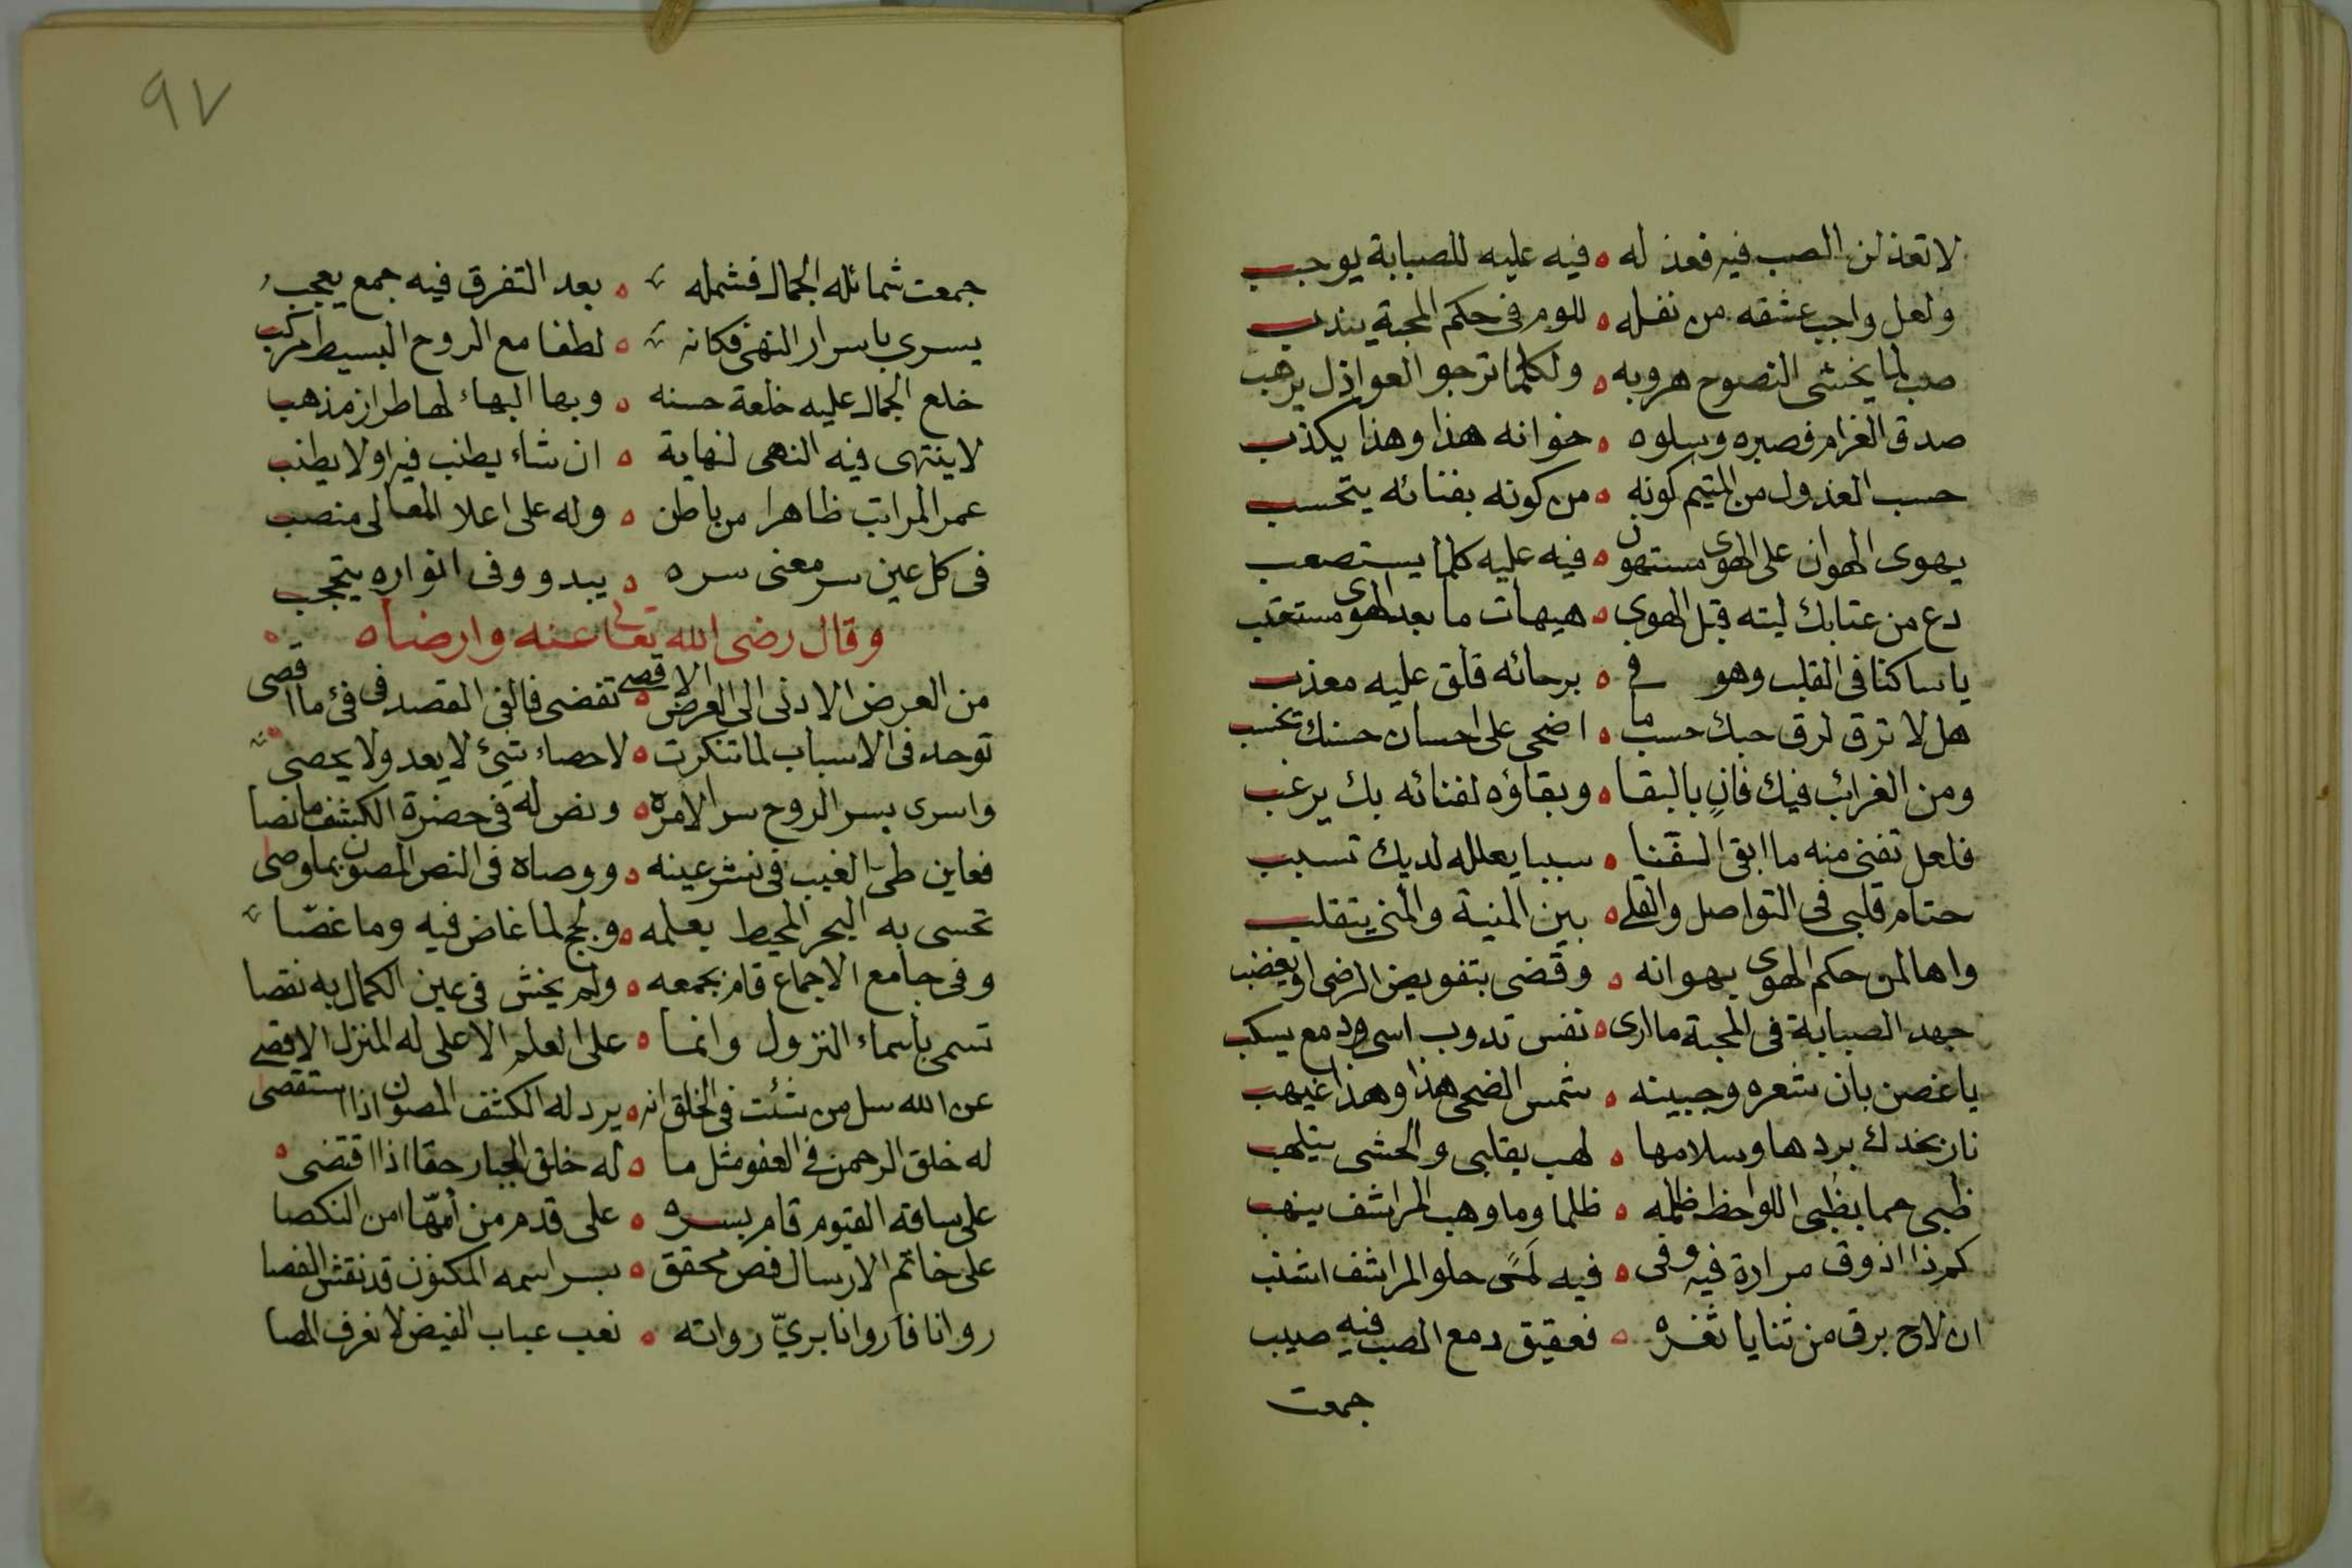 لا تعذلن الصب فيه فعذله ه فيه عليه للصبابة يوجب
ولعل واجب عشقه من نفله ه للوم فى حكم المحبة يندب
صب لما يخشى النصوح هروبه ه ولكلما ترجو العواذل يرهب
صدق الغرام فصبره وسلوه ه خوانه هذا وهذا يكذب
حسب العذول من المتيم كونه ه من كونه بفنائه يتحسب
يهوى الهوان على الهوى مستهون ه فيه عليه كلما يستصعب
دع من عتابك ليته قبل الهوى ه هيهات ما بعد الهوى مستعتب
يا ساكنا فى القلب وهو فى ه برحائه قلق عليه معذب
هل لا ترق لرق حبك حسب ما ه اضحى على احسان حسنك تحسب
ومن الغرائب فيك فانٍ بالبقا ه وبقاؤه لفنائه بك يرغب
فلعل تفنى منه ما ابقى ه سببا يعلله لديك تسبب
حتام قلبى فى التواصل والقلى ه بين المنية والمنى يتقلب
واها لمن حكم الهوى بهوانه ه وقضى بتفويض الرضى او يغضب
جهد الصبابة فى المحبة ما ارى ه نفس تدوب اسى ودمع يسكب
يا غصن بان شعره وجبينه ه شمس الضحى هذا وهذا غيهب
نار بخدك بردها وسلامها ه لهب بقلبى والحشى يتلهب
ظبى حما بظبى اللواحظ ظلمه ه ظلما وما وهب المراشف ينهب
كم ذا اذوق مرارة فيه وفى ه فيه لمًى حلو المراشف اشنب
ان لاح برق من ثنايا ثغره ه فعقيق دمع الصب فيه صيب
جمعت
٩٧
جمعت شمائله الجمال فشمله ه بعد التفرق فيه جمع يعجب
يسرى باسرار النهى فكانه ه لطفا مع الروح البسيط مركب
خلع الجمال عليه خلعة حسنه ه وبها البهاء لها طراز مذهب
لا ينتهى فيه النهى لنهاية ه ان شاء يطنب فيه او لا يطنب
عمر المراتب ظاهرا من باطن ه وله على اعلا المعالى منصب
فى كل عين سر معنى سره ه يبدو وفى انواره يتحجب
وقال رضى الله تعالى عنه وارضاه ه
من العرض الادنى الى الغرض الاقصى ه تقضى فالفى المقصد فى فئ ما اقصى
توحد فى الاسباب لما تنكرت ه لاحصاء شئ لا يعد ولا يحصى
واسرى بسر الروح سر الامره ه ونص له فى حضرة الكشف ما نصا
فعاين طىّ الغيب فى نشر عينه ه ووصاه فى النص المصون بما وصى
تحسى به البحر المحيط بعلمه ه ولجج لما غاض فيه وما غصّا
وفى جامع الاجماع قام بجمعه ه ولم يخش فى عين الكمال به نقصا
تسمى باسماء النزول وانما ه على العلم الاعلى له المنزل الاقصى
عن الله سل من شئت فى الخلق انه ه يرد له الكشف المصون اذا استقصى
له خلق الرحمن فى العفو مثل ما ه له خلق الجبار حقا اذا اقتضى
على ساقه القيوم قام بسره ه على قدم من أمّها امن النكصا
على خاتم الارسال فص محقق ه بسر اسمه المكنون قد نقش الفصا
روانا فاروانا برىّ رواته ه نعب عباب الفيض لا نعرف المصا